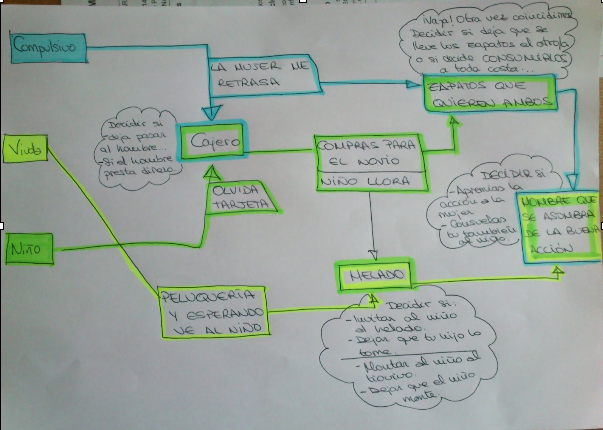 Compulsivo
LA MUJER ME
RETRASA
¡Vaya! Otra vez coincidimos
Decidir si deja que se
lleve los zapatos el otro/a
o si decide CONSUMIRLOS
a toda costa...
ZAPATOS QUE
QUIEREN AMBOS
Decidir si
deja pasar
al hombre...
-Si el hombre
presta dinero.
Cajero
Viuda
COMPRAS PARA
EL NOVIO
NIÑO LLORA
OLVIDA
TARJETA
DECIDIR SI
- Aprecias la
acción a la
mujer
- Consuelas
tu también
al niño.
HOMBRE QUE
SE ASOMBRA
DE LA BUENA
ACCIÓN
NIÑO
HELADO
PELUQUERÍA
Y ESPERANDO
VE AL NIÑO
Decidir si:
- Invitar al niño
al helado.
- Dejar que tu hijo lo
tome.
- Montar al niño al
tiovivo.
- Dejar que el niño
monte